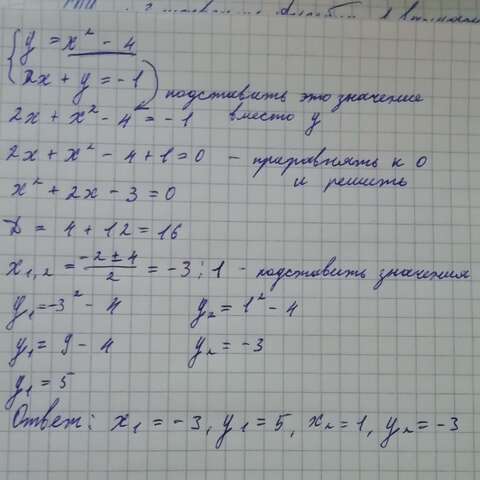 y = x² - 4
2x + y = -1
подставить это значение
2x + x² - 4 = -1 вместо y
2x + x² - 4 + 1 = 0 - приравнять к 0
и решить
x² + 2x - 3 = 0
D = 4 + 12 = 16
x₁,₂ = (-2 ± 4)/2 = -3; 1 - подставить значения
y₁ = -3² - 4 y₂ = 1² - 4
y₁ = 9 - 4 y₂ = -3
y₁ = 5
Ответ: x₁ = -3, y₁ = 5, x₂ = 1, y₂ = -3